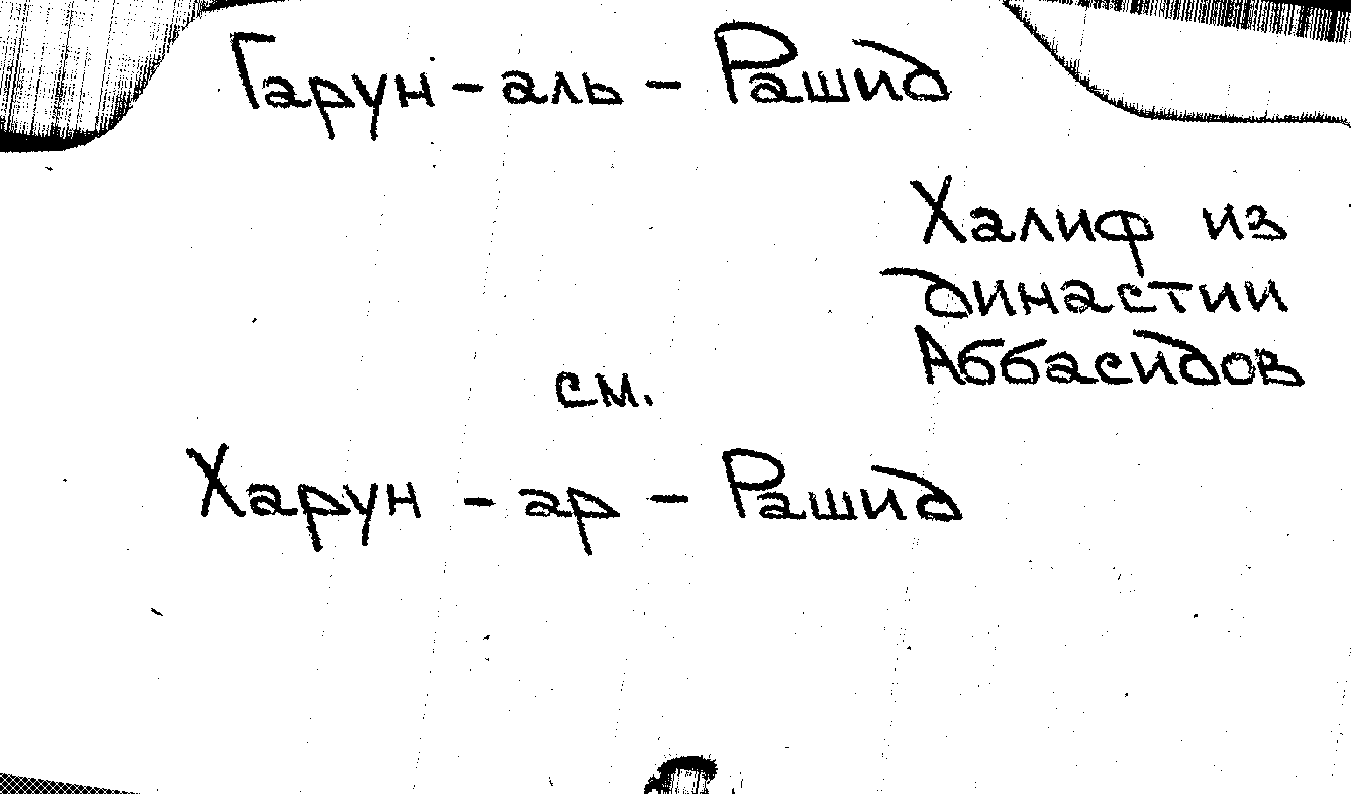 Гарун - аль - Рашид
Халиф из
династии
Аббасидов
см.
Харун - ар - Рашид